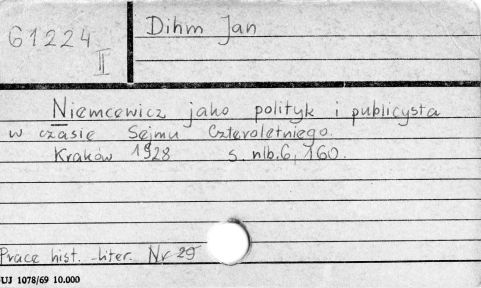 61224
II
Dihm Jan
Niemcewicz jako polityk i publicysta
w czasie Sejmu Czteroletniego.
Kraków 1928 s. nlb. 6, 160.
Prace hist. -liter. Nr 29
UJ 1078/69 10.000